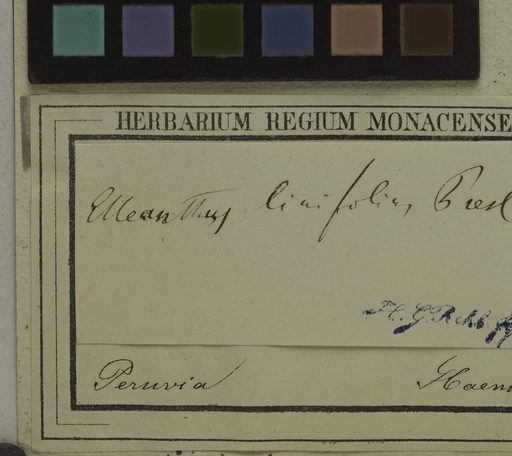 HERBARIUM REGIUM MONACENSE
Elleanthus linifolius Presl
H. G. Rchb. ff
Peruvia Haen